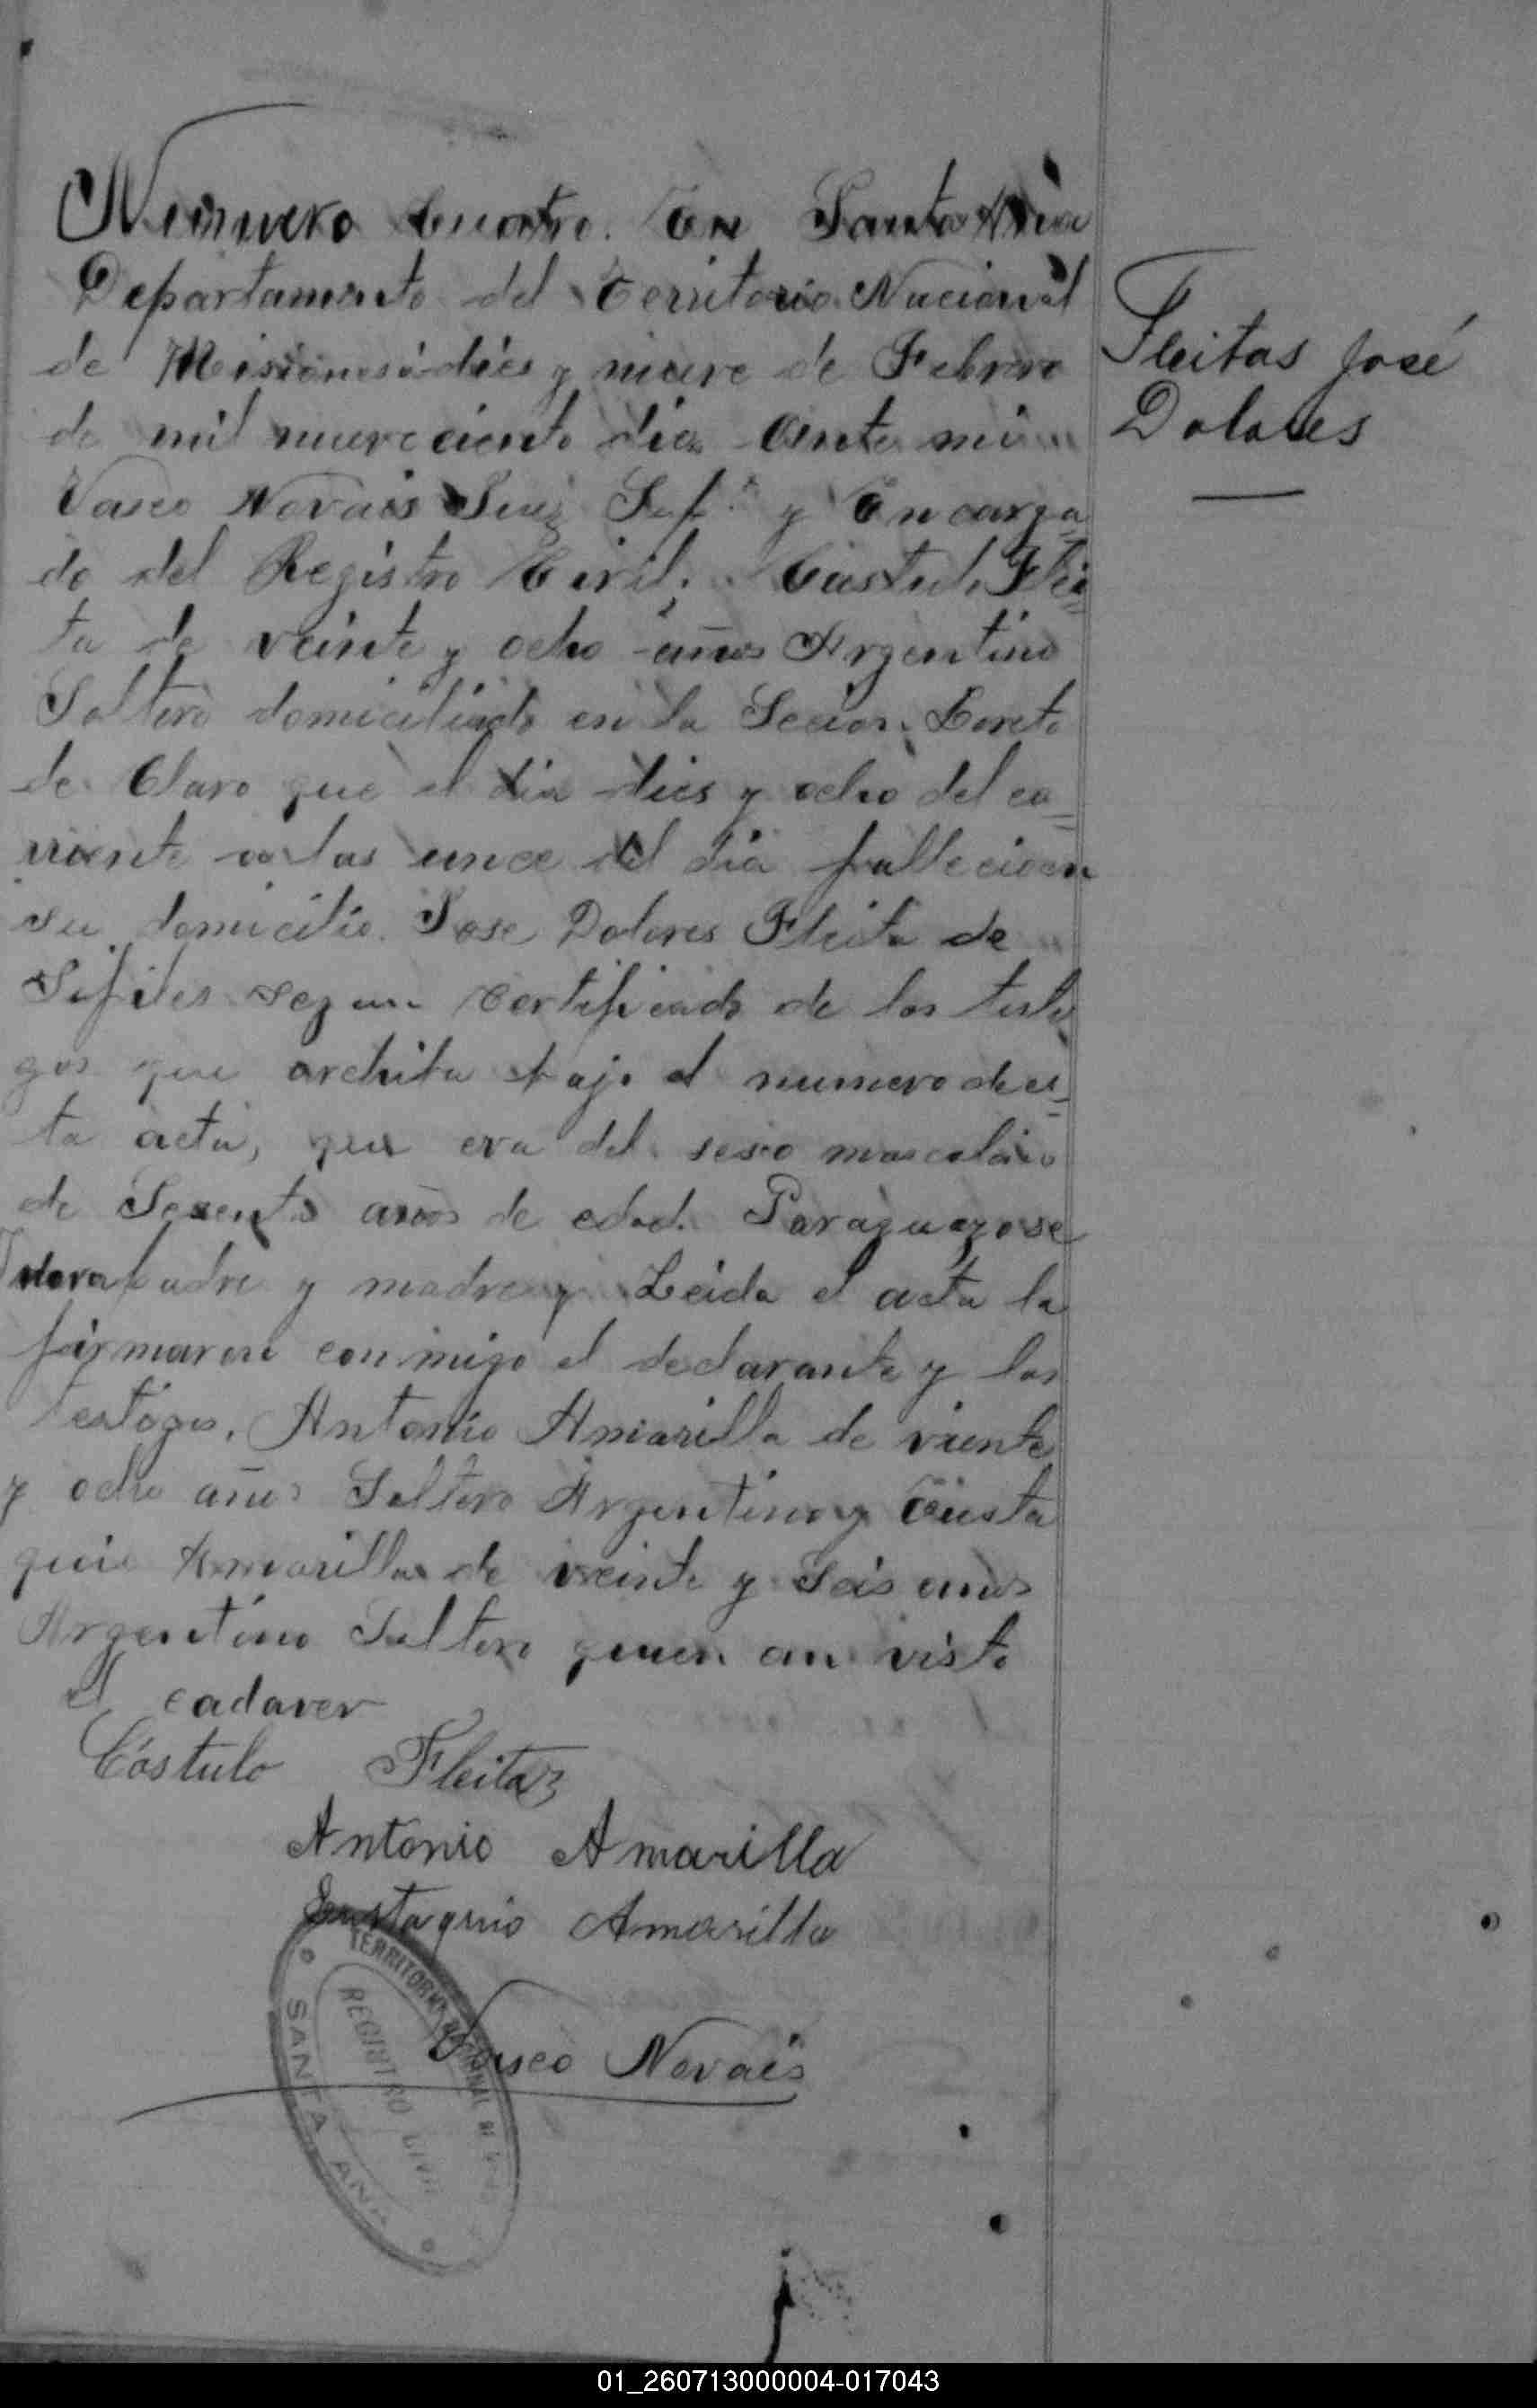 Numero Cuatro. En Santa Ana
Departamento del Territorio Nacional
de Misiones á dies y nueve de Febrero
de mil nueveciento dies ante mi
Vasco Novais Juez y Encarga=
do del Registro Civil; Castulo Flei=
ta de veinte y ocho años Argentino
Soltero domiciliado en la Secion Loreto
de Claro que el dia dies y ocho del co=
rriente a las once del dia fallecio en
su domicilio Jose Dolores Fleita de
Sifiles segun Certificado de los testi
gos que archibu bajo el numero de es=
ta acta, que era del sexo masculino
de Sesenta años de edad. Paraguayo se
padre y madre y Leida el acta la
firmaron conmigo el declarante y los
testigos, Antonio Amarilla de viente
y ocho años Soltero Argentino y Eusta
quio Amarilla de veinte y Seis anos
Argentino Soltero quien an visto
el cadaver
Cástulo Fleitas
Antonio Amarilla
Eustaquio Amarilla
Vasco Novais
TERRITORIO NACIONAL DE
REGISTRO CIVIL
SANTA ANA
Fleitas José
Dolores
01_260713000004-017043